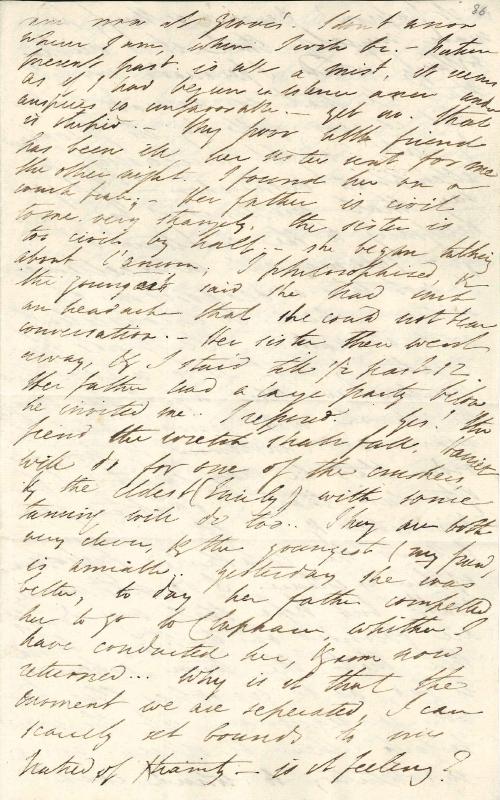 86
am now at Grove's. I don't know
where I am, where I will be. - Future
present past is all a mist, it seems
as if I had begun existence anew under
auspices so unfavorable. - Yet no. that
is stupid. - My poor little friend
has been ill her sister sent for me
the other night. I found her on a
couch pale; - Her father is civil
to me very strangely, the sister is
too civil by half, - she began talking
about l'amour; I philosophised, &
the youngest said she had such
an headache that she could not bear
conversation. - Her sister then went
away, & I staid till 1/2 past 12.
Her father had a large party below
he invited me.. I refused. Yes! The
fiend the wretch shall fall. Harriet
will do for one of the crushers
& the eldest (Emily) with some
taming will do too.. They are both
very clever, & the youngest (my friend)
is amiable. Yesterday she was
better, to day her father compelled
her to go to Clapham, whither I
have conducted her, & am now
returned... Why is it that the
moment we are seperated, I can
scarcely set bounds to my
hatred of Xtianity - is it feeling?